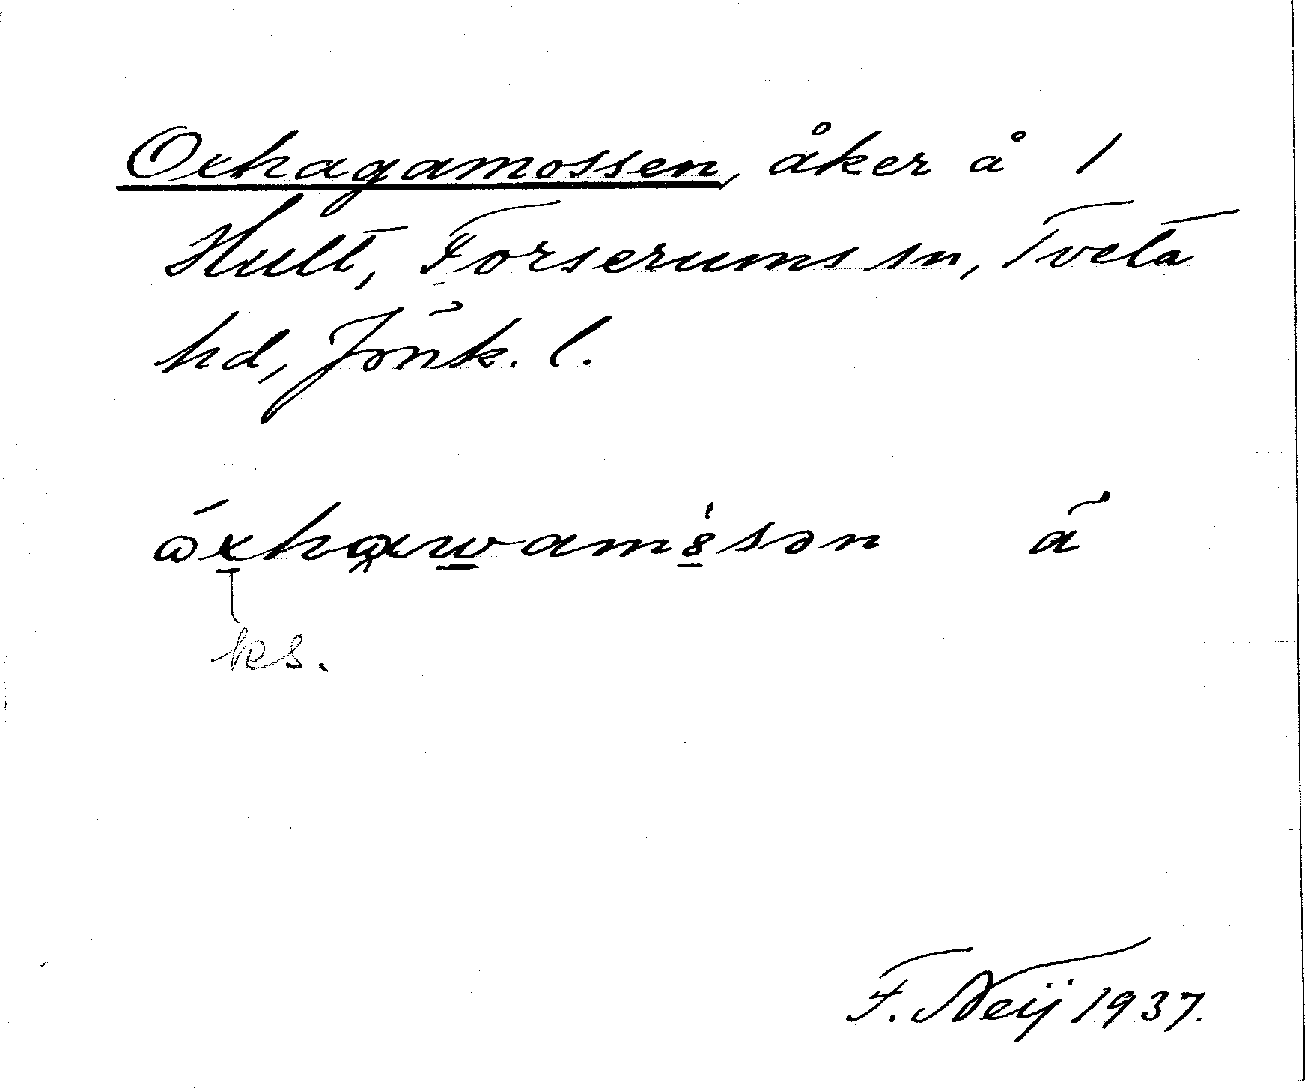 Oxhagamossen, åker å 1
Hult, Forserums sn, Tveta
hd, Jönk. l.
å
ks.
F. Neij 1937.